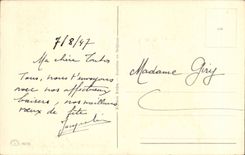 7/8/47
Ma chère
Tous, nous t'envoyons
avec nos affectueux
baisers, nos meilleurs
vœux de fête
Madame Giry